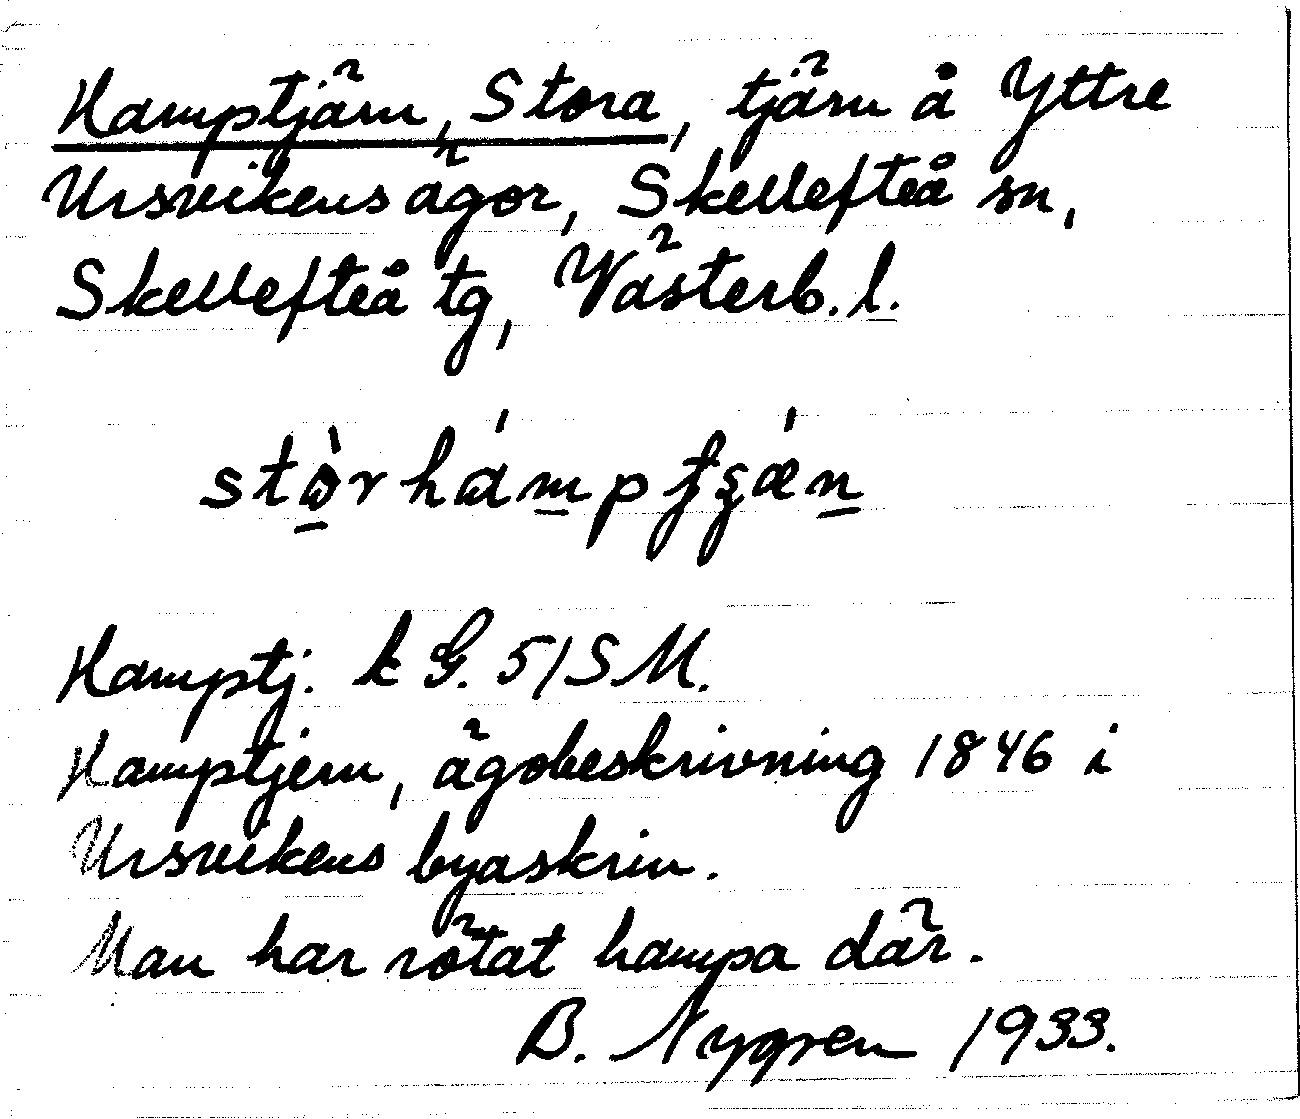 Hamptjärn, Stora, tjärn å Yttre
Ursvikens ägor, Skellefteå sn,
Skellefteå tg, Västerb. l.
stò̱rhám̱pʈʂǽṉ
Hamptj. k G. 51SM.
Hamptjern, ägobeskrivning 1846 i
Ursvikens byaskrin.
Man har rötat hampa där.
B. Nygren 1933.